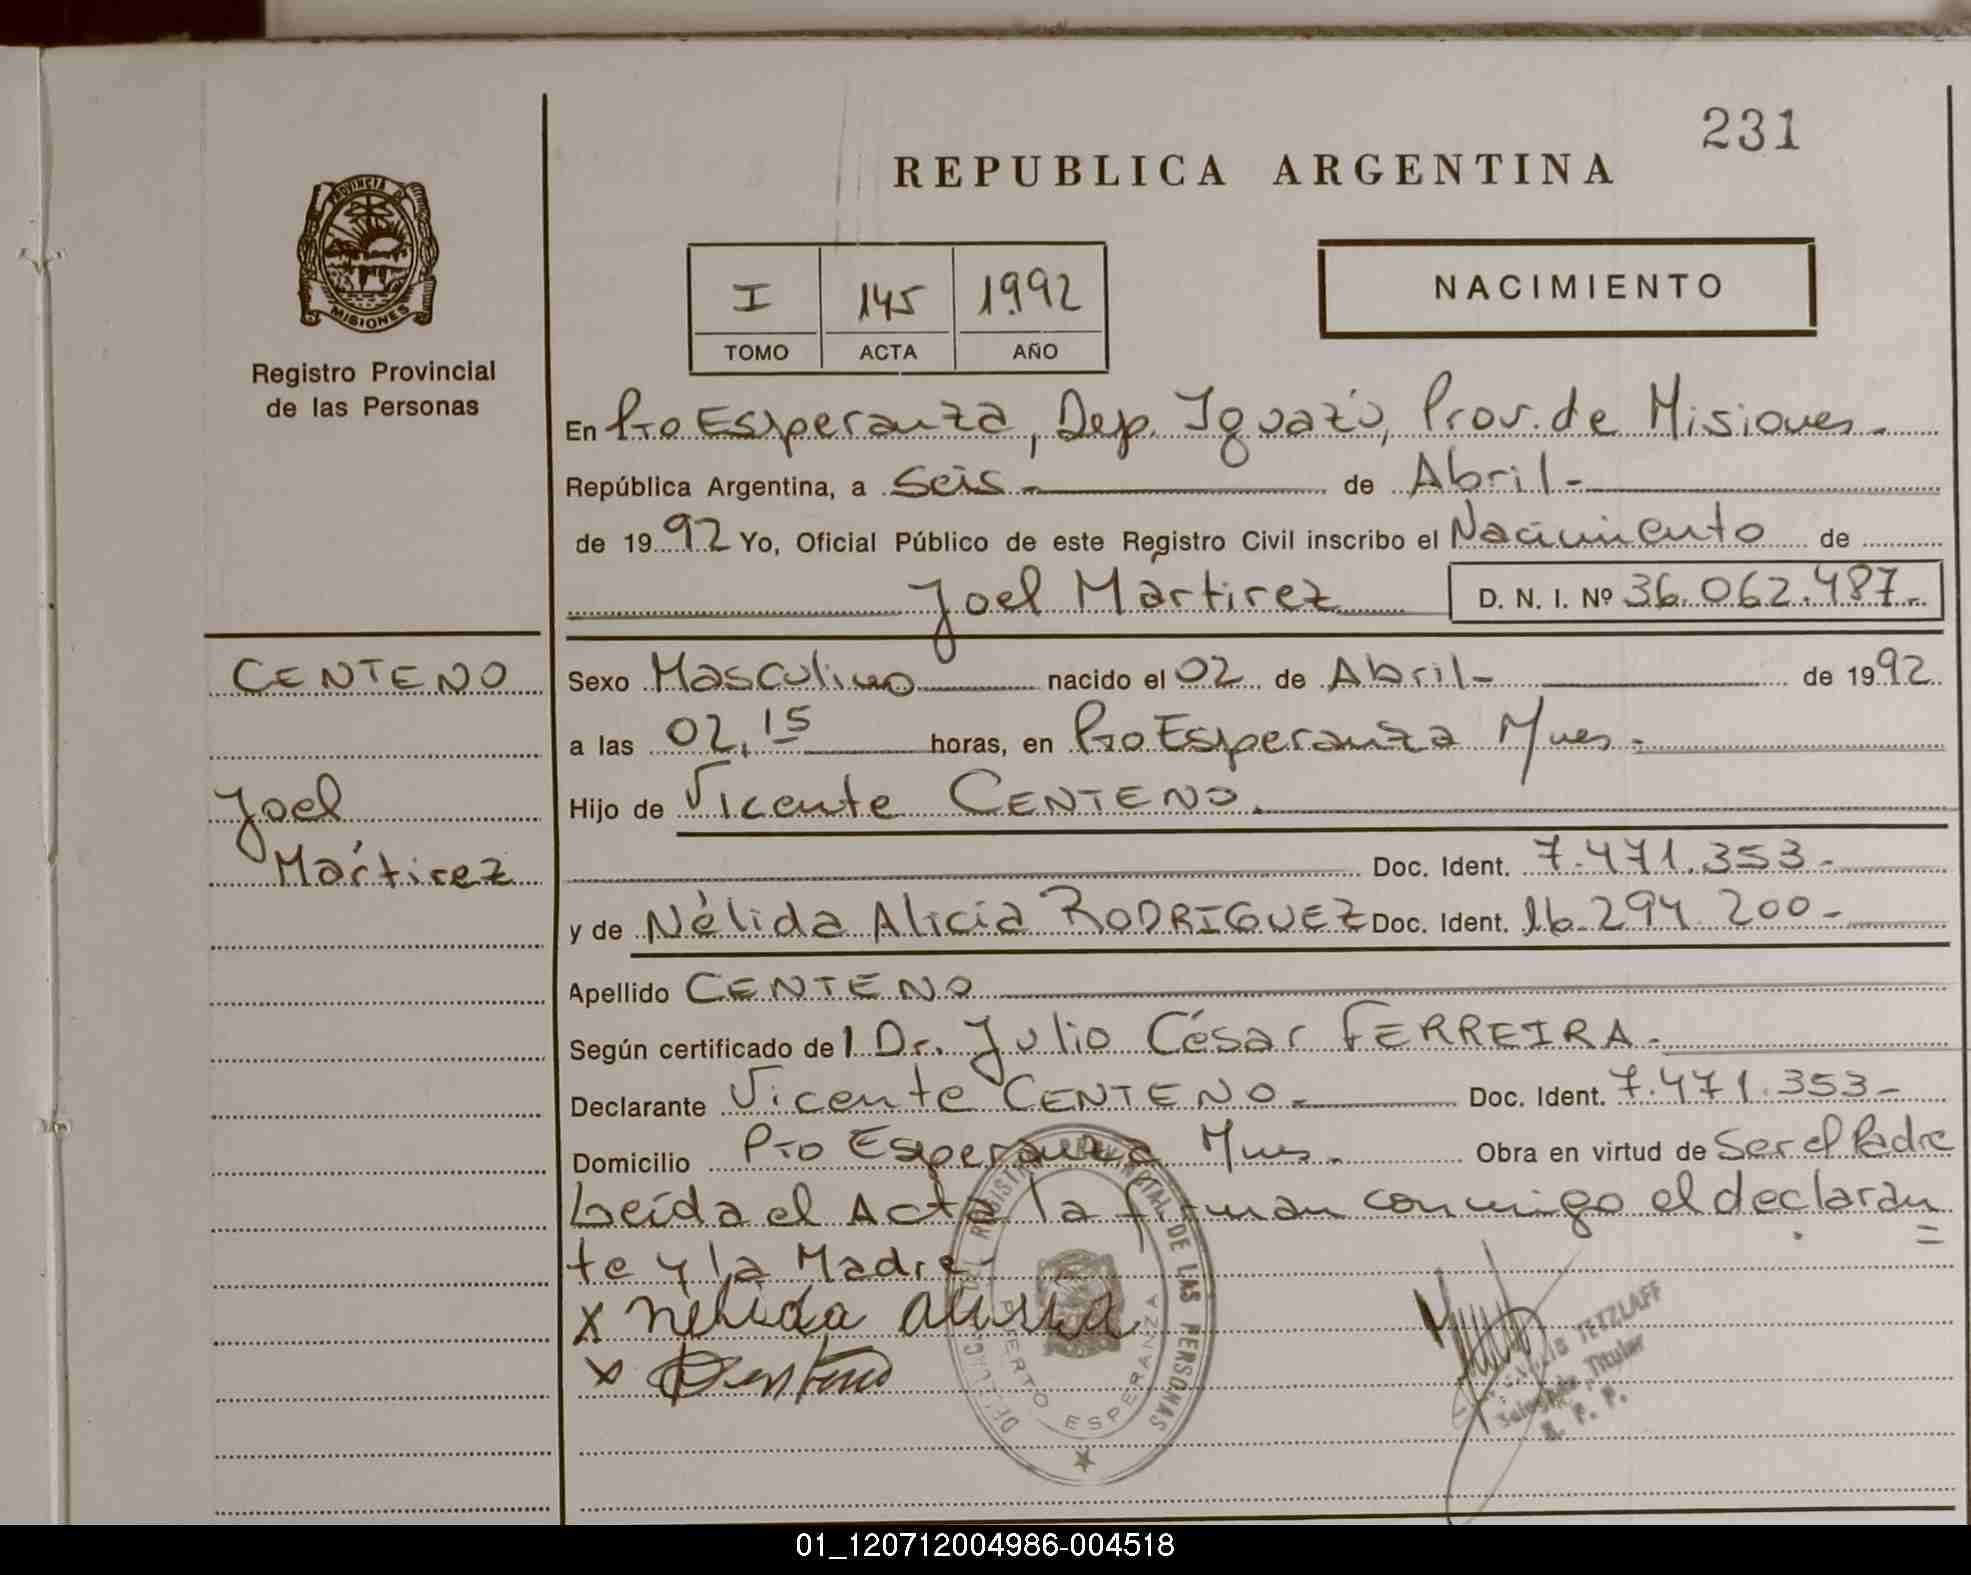 231
REPUBLICA ARGENTINA
PROVINCIA DE
MISIONES
Registro Provincial
de las Personas
I 145 1992
TOMO ACTA AÑO
NACIMIENTO
En Pto Esperanza, Dep. Iguazú, Prov. de Misiones.-
República Argentina, a seis.- de Abril.-
de 1992 Yo, Oficial Público de este Registro Civil inscribo el Nacimiento de
Joel Mártirez D. N. I. Nº 36.062.487.-
CENTENO
Joel
Mártirez
Sexo Masculino nacido el 02 de Abril.- de 1992
a las 02,15 horas, en Pto Esperanza Mnes.-
Hijo de Vicente CENTENO.
Doc. Ident. 7.471.353.-
y de Nélida Alicia RODRIGUEZ Doc. Ident. 16.294.200.-
Apellido CENTENO
Según certificado del Dr. Julio César FERREIRA.-
Declarante Vicente CENTENO.- Doc. Ident. 7.471.353.-
Domicilio Pto Esperanza Mnes.- Obra en virtud de Ser el Padre
Leída el Acta la firman conmigo el declaran=
te y la Madre.-
x Nelida
x Centeno
REGISTRO PROVINCIAL DE LAS PERSONAS
PUERTO ESPERANZA
TETZLAFF
Titular
R. P. P.
01_120712004986-004518